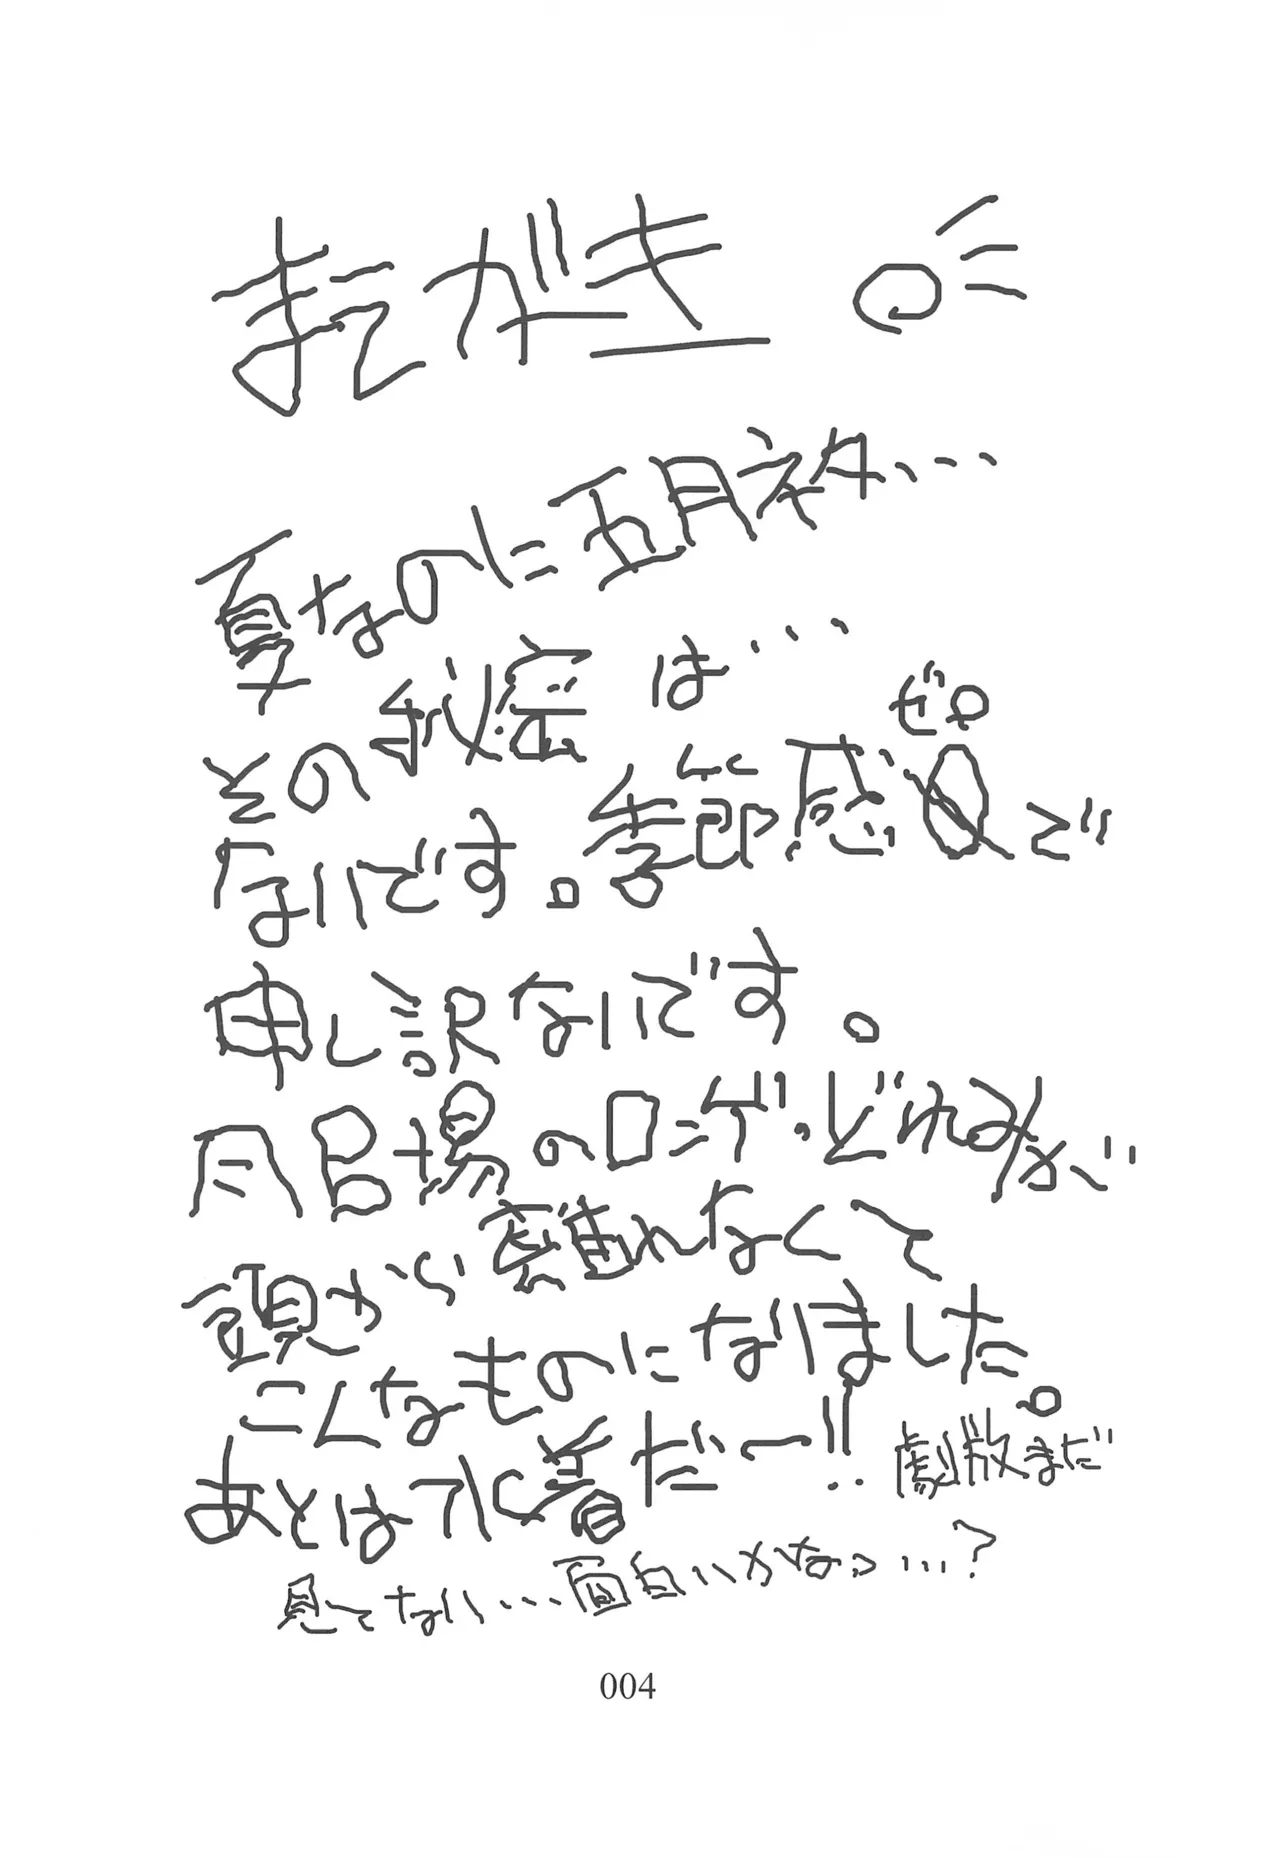 まえがき
夏なのに五月ネタ…
その秘密は…
ないです。季節感0で
ゼロ
申し訳ないです。
風呂場のロンゲ・どれみが
頭から離れなくて
こんなものになりました。
あとは水着だー!!
劇散まだ
見てない…面白いかなぁ…?
004